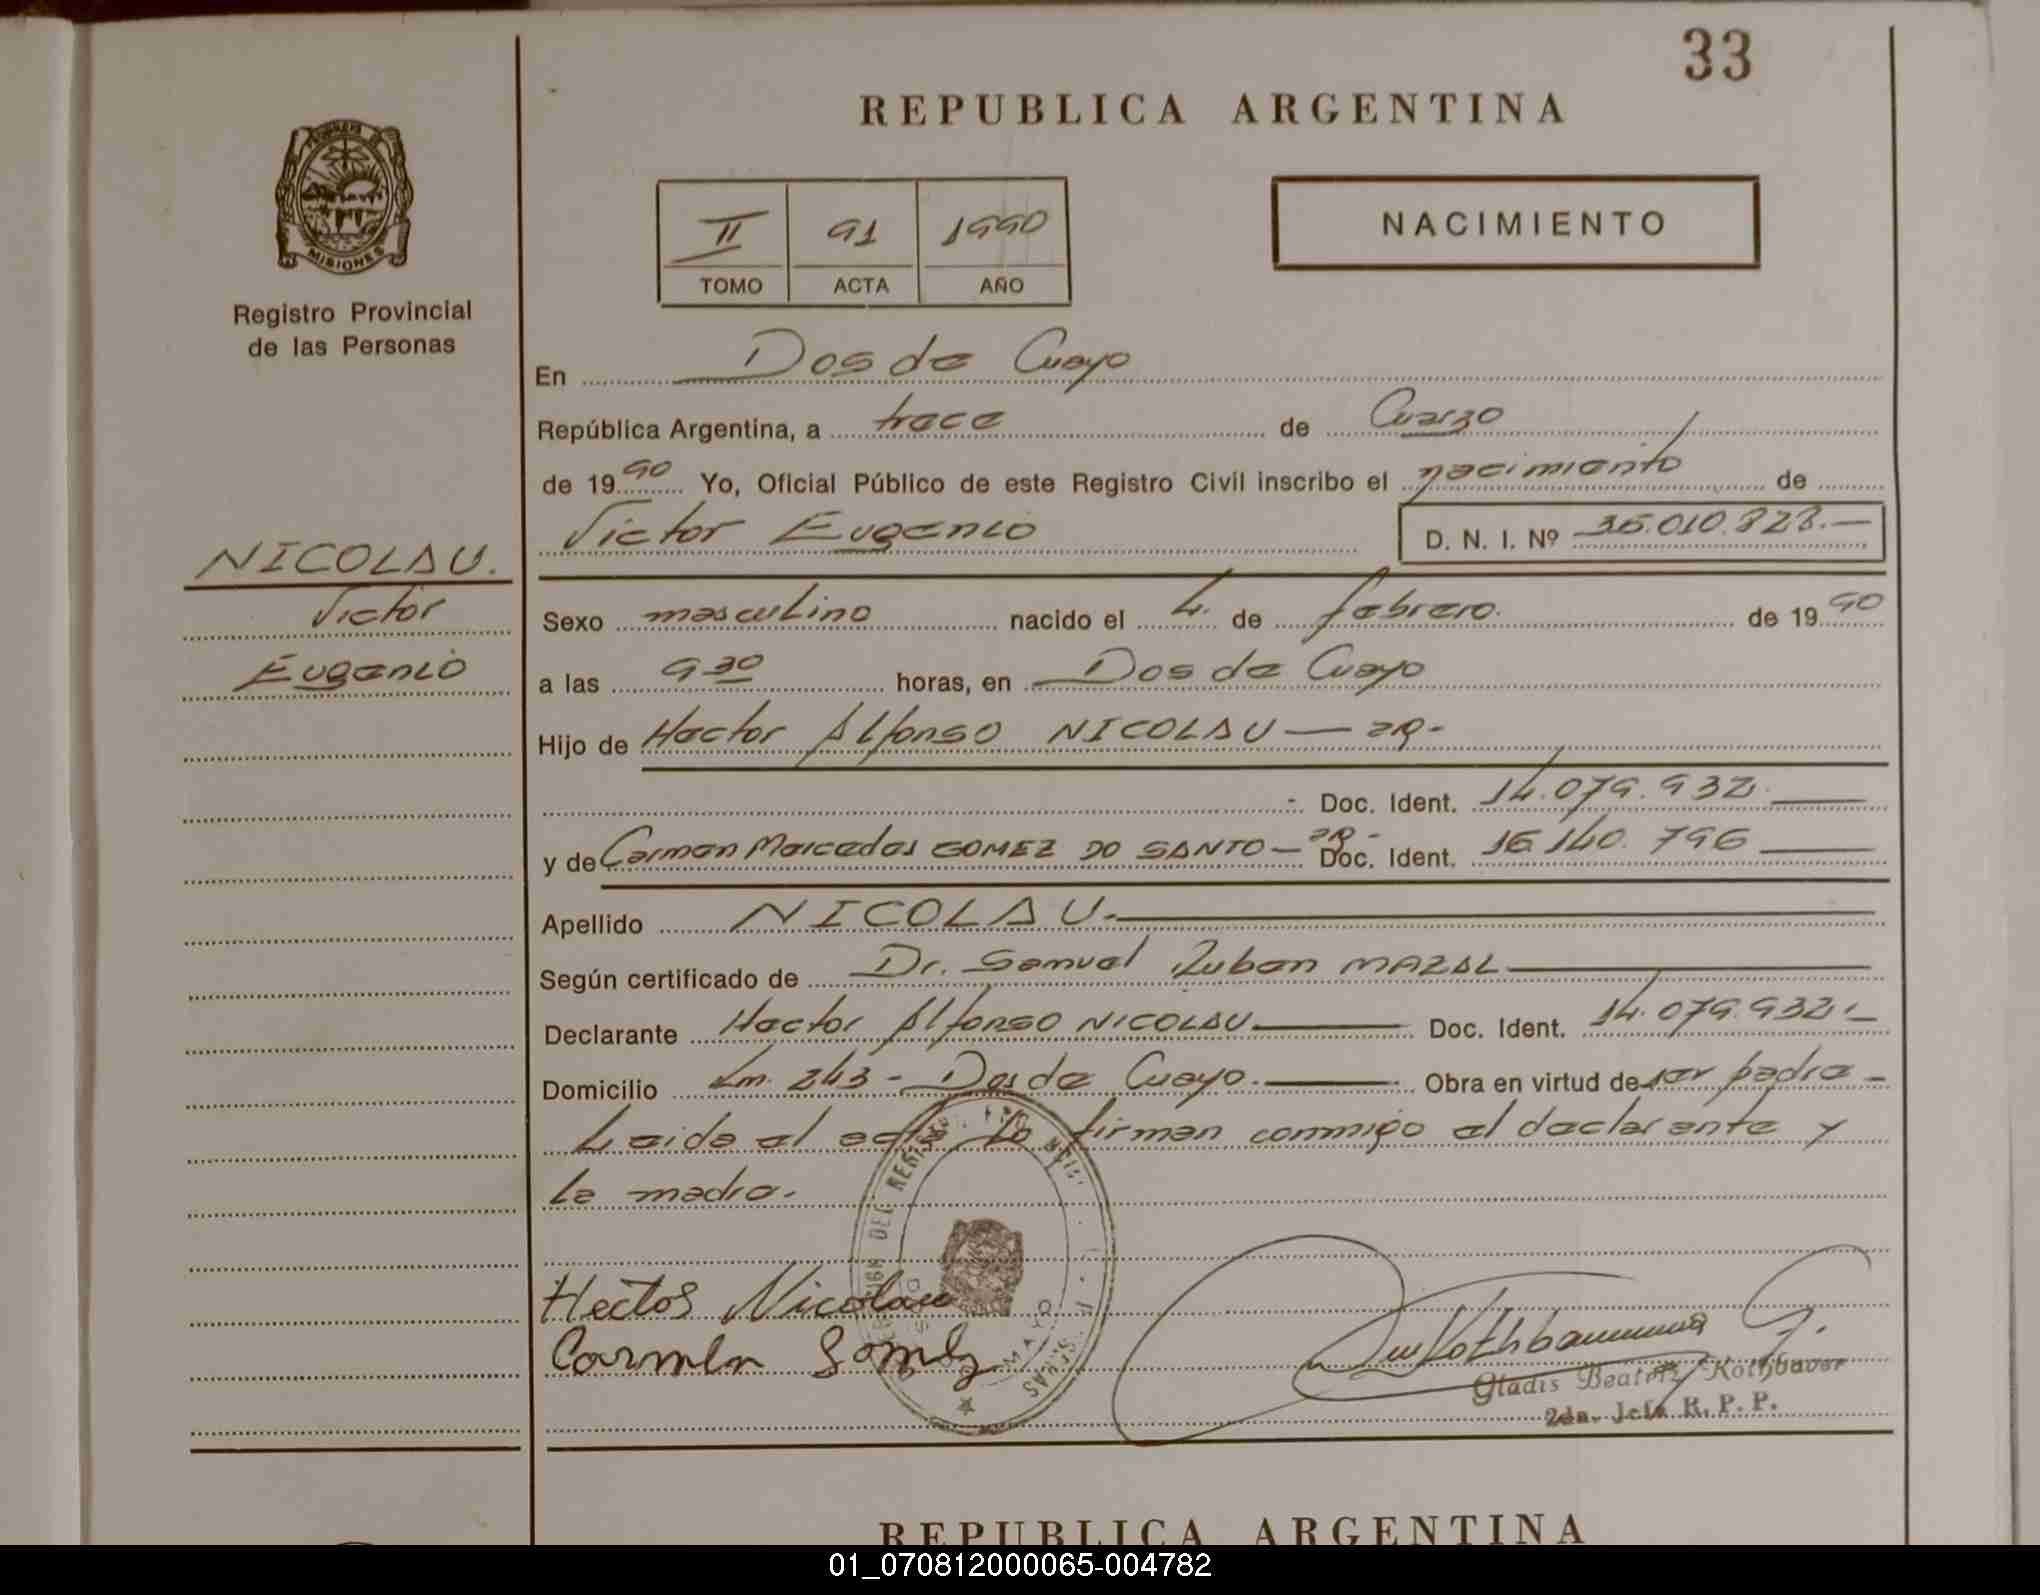 33
REPUBLICA ARGENTINA
MISIONES
Registro Provincial
de las Personas
II 91 1990
TOMO ACTA AÑO
NACIMIENTO
En Dos de Mayo
República Argentina, a trece de Marzo
de 1990 Yo, Oficial Público de este Registro Civil inscribo el nacimiento de
Victor Eugenio D. N. I. Nº 35.010.828.—
NICOLAU.
Victor
Eugenio
Sexo masculino nacido el 4 de febrero. de 1990
a las 9 30 horas, en Dos de Mayo
Hijo de Hector Alfonso NICOLAU — ar-
Doc. Ident. 14.079.932.
y de Carmen Mercedes GOMEZ DO SANTO — ar- Doc. Ident. 16.140.796
Apellido NICOLAU.
Según certificado de Dr. Samuel Ruben MAZAL
Declarante Hector Alfonso NICOLAU Doc. Ident. 14.079.932.-
Domicilio km. 243 - Dos de Mayo. Obra en virtud de ser padre -
Leida el acta, la firman conmigo el declarante y
la madre.
Hector Nicolau
Carmen Gomez
Gladis Beatriz Kothbauer
2da. Jefa R. P. P.
REPUBLICA ARGENTINA
01_070812000065-004782